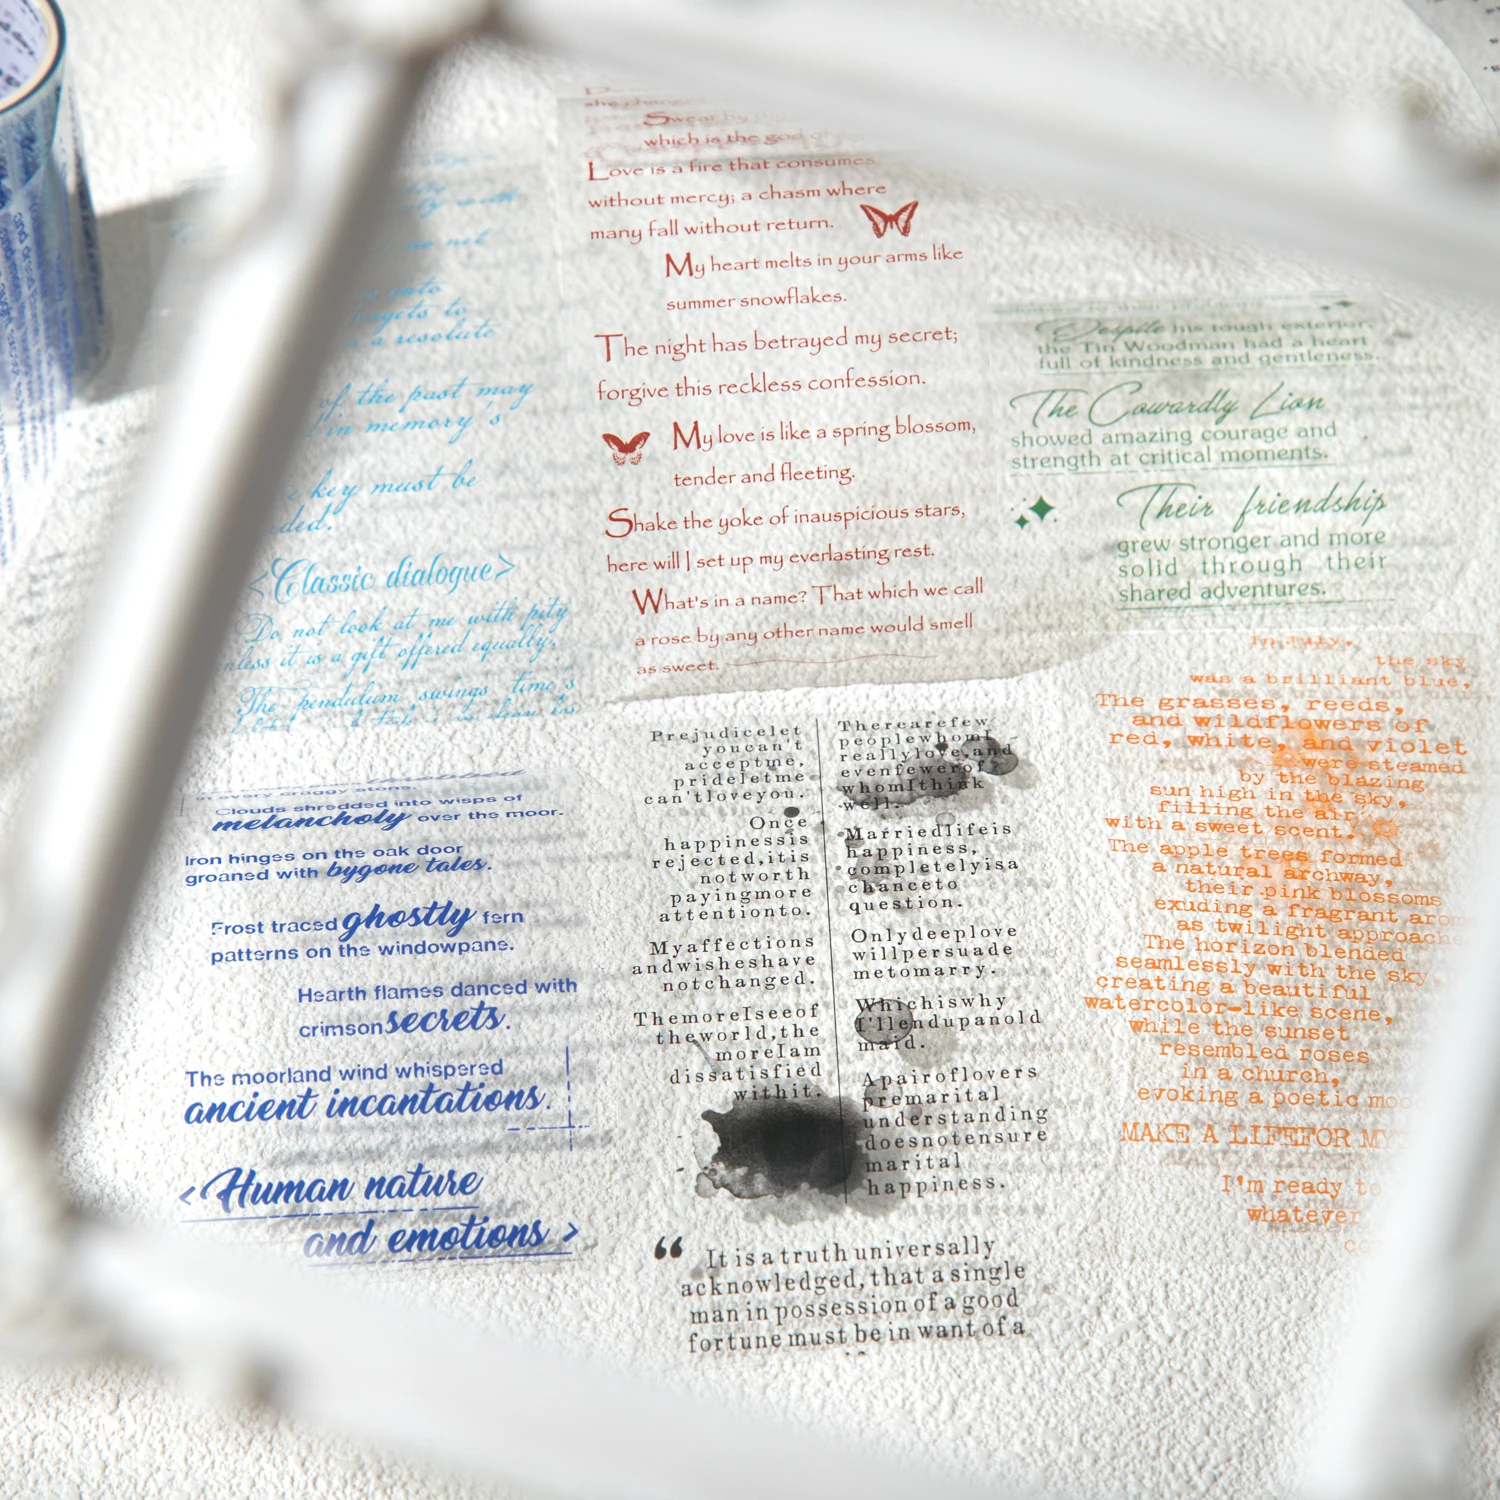 into
a resolute
of the past may
in memory's
key must be
<Classic dialogue>
Do not look at me with pity
it is a gift offered equally.
The pendulum swings, time's
she
Swear by
which is the god of
Love is a fire that consumes
without mercy; a chasm where
many fall without return.
My heart melts in your arms like
summer snowflakes.
The night has betrayed my secret;
forgive this reckless confession.
My love is like a spring blossom,
tender and fleeting.
Shake the yoke of inauspicious stars,
here will I set up my everlasting rest.
What's in a name? That which we call
a rose by any other name would smell
as sweet.
Despite his tough exterior,
the Tin Woodman had a heart
full of kindness and gentleness.
The Cowardly Lion
showed amazing courage and
strength at critical moments.
Their friendship
grew stronger and more
solid through their
shared adventures.
in every craggy stone.
Clouds shredded into wisps of
melancholy over the moor.
Iron hinges on the oak door
groaned with bygone tales.
Frost traced ghostly fern
patterns on the windowpane.
Hearth flames danced with
crimson secrets.
The moorland wind whispered
ancient incantations.
<Human nature
and emotions >
Prejudicelet
youcan't
acceptme,
prideletme
can'tloveyou.
Once
happinessis
rejected,itis
notworth
payingmore
attentionto.
Myaffections
andwisheshave
notchanged.
ThemoreIseeof
theworld,the
moreIam
dissatisfied
withit.
Therearefew
peoplewhomI
reallylove,and
evenfewerof
whomIthink
well.
Marriedlifeis
happiness,
completelyisa
chanceto
question.
Onlydeeplove
willpersuade
metomarry.
Whichiswhy
I'llendupanold
maid.
Apairoflovers
premarital
understanding
doesnotensure
marital
happiness.
“ It is a truth universally
acknowledged, that a single
man in possession of a good
fortune must be in want of a
In July,
the sky
was a brilliant blue,
The grasses, reeds,
and wildflowers of
red, white, and violet
were steamed
by the blazing
sun high in the sky,
filling the air
with a sweet scent.
The apple trees formed
a natural archway,
their pink blossoms
exuding a fragrant aroma
as twilight approache
The horizon blended
seamlessly with the sky,
creating a beautiful
watercolor-like scene,
while the sunset
resembled roses
in a church,
evoking a poetic mood
MAKE A LIFEFOR MY
I'm ready to
whatever